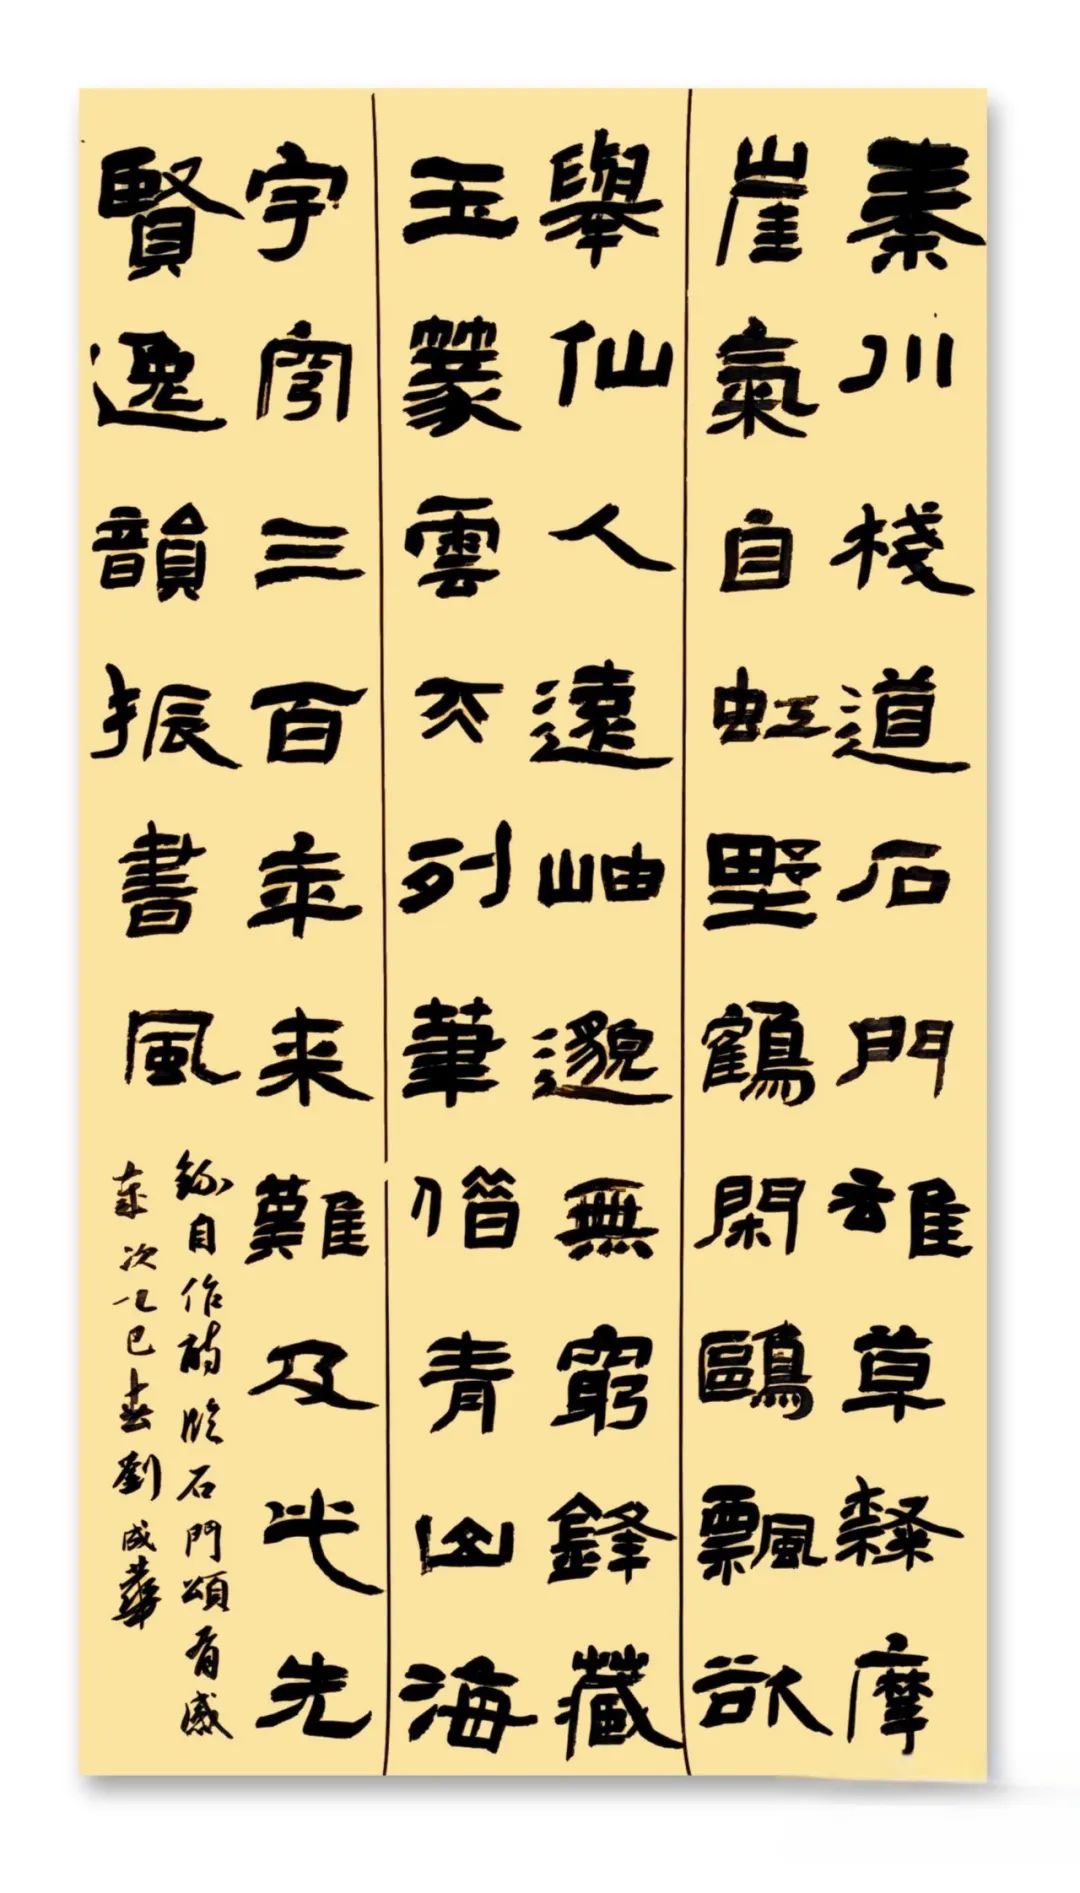 秦川棧道石門雄草隸摩
崖氣自虹墅鶴閑鷗飄欲
舉仙人遠岫邈無窮鋒藏
玉篆雲天列筆借青山海
宇穹三百年来難及先
賢逸韻振書風
録自作詩臨石門頌有感
歲次乙巳春劉成華